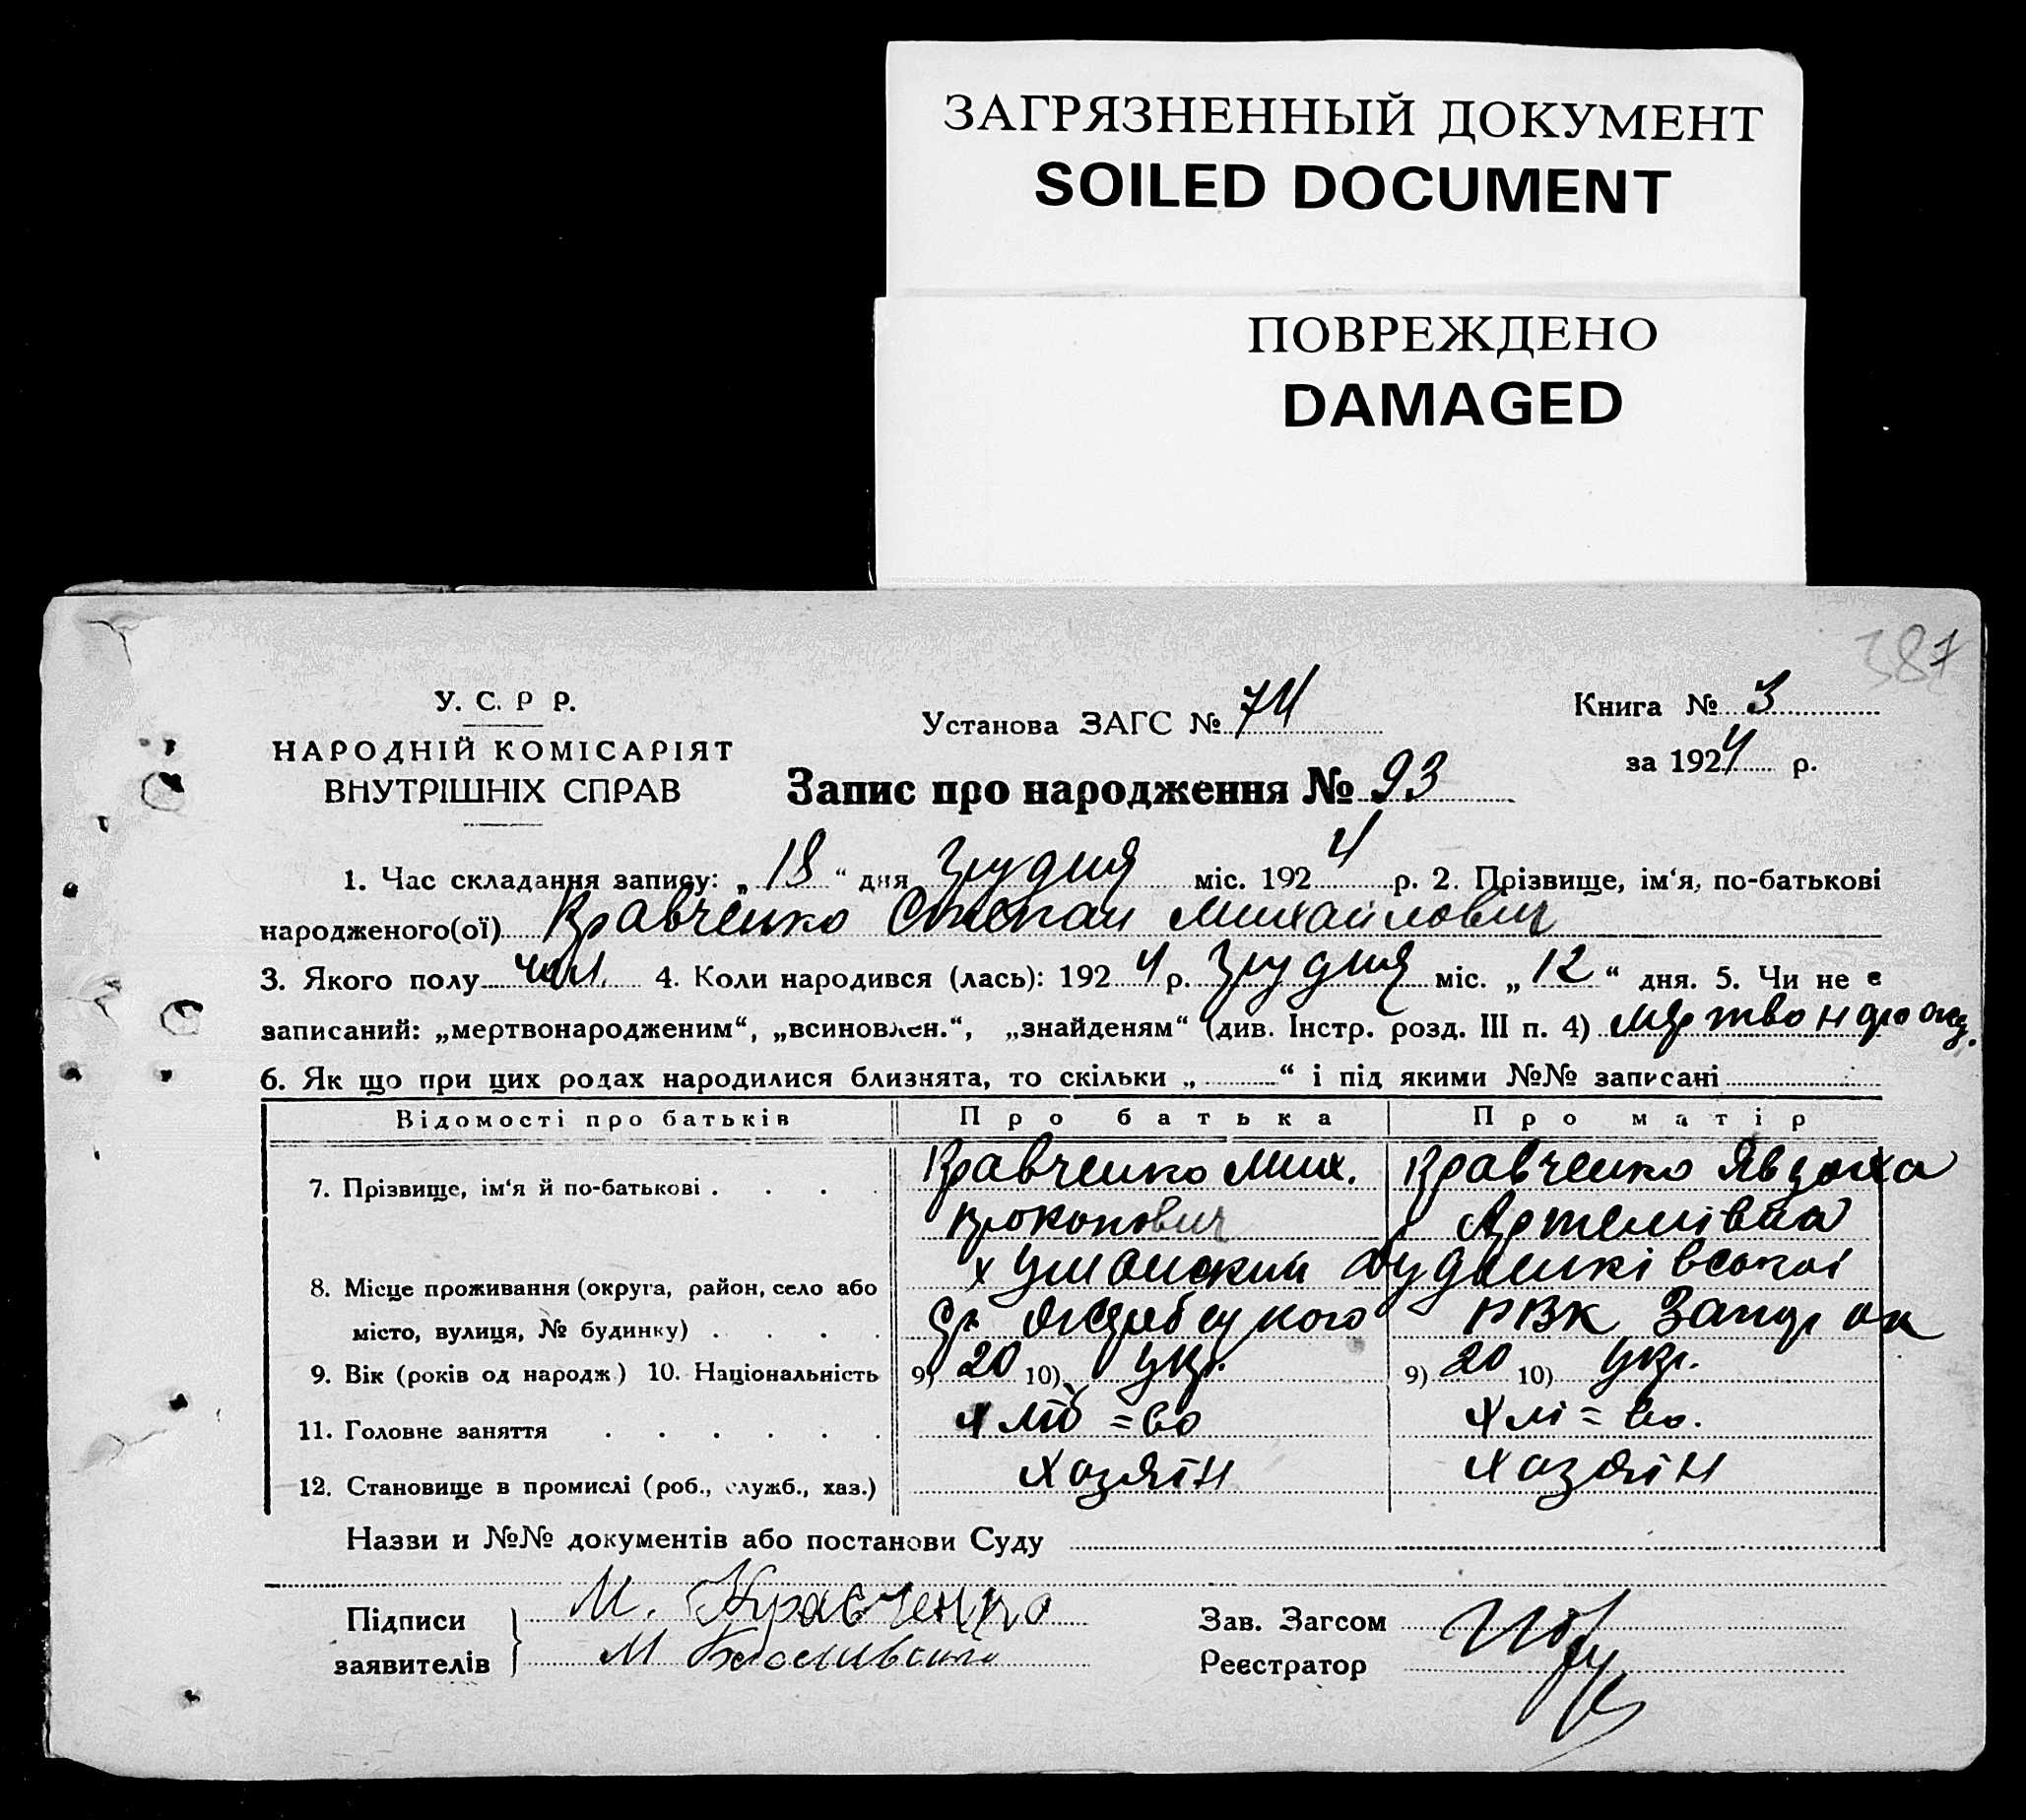 ЗАГРЯЗНЕННЫЙ ДОКУМЕНТ
SOILED DOCUMENT
ПОВРЕЖДЕНО
DAMAGED
387
У. С. Р Р.
НАРОДНІЙ КОМІСАРІЯТ
ВНУТРІШНІХ СПРАВ
Установа ЗАГС № 74
Книга № 3
за 1924 р.
Запис про народження № 93
1. Час складання запису: „ 18 “ дня грудня міс. 1924 р. 2. Прізвище, ім‘я, по-батькові
народженого(ої) Кравченко Степан Михайлович
3. Якого полу чол. 4. Коли народився (лась): 1924 р. грудня міс. „ 12 “ дня. 5. Чи не є
записаний: „мертвонародженим“, „всиновлен.“, „знайденям“ (див. Інстр. розд. III п. 4) мертвонарожд.
6. Як що при цих родах народилися близнята, то скільки „ “ і під якими №№ записані
Відомості про батьків Про батька Про матір
7. Прізвище, ім‘я й по-батькові . . . . Кравченко Мих. Кравченко Явдоха
Прокопович Артемівна
8. Місце проживання (округа, район, село або х Уманский
місто, вулиця, № будинку) . . . . РВК Запор ок
9. Вік (років од народж.) 10. Національність 9) 20 10) укр. 9) 20 10) укр.
11. Головне заняття . . . . . . хліб=во хлі=во.
12. Становище в промислі (роб., служб., хаз.) хазяін хазяін
Назви и №№ документів або постанови Суду
Підписи
заявителів
М. Кравченко
М
Зав. Загсом
Реєстратор